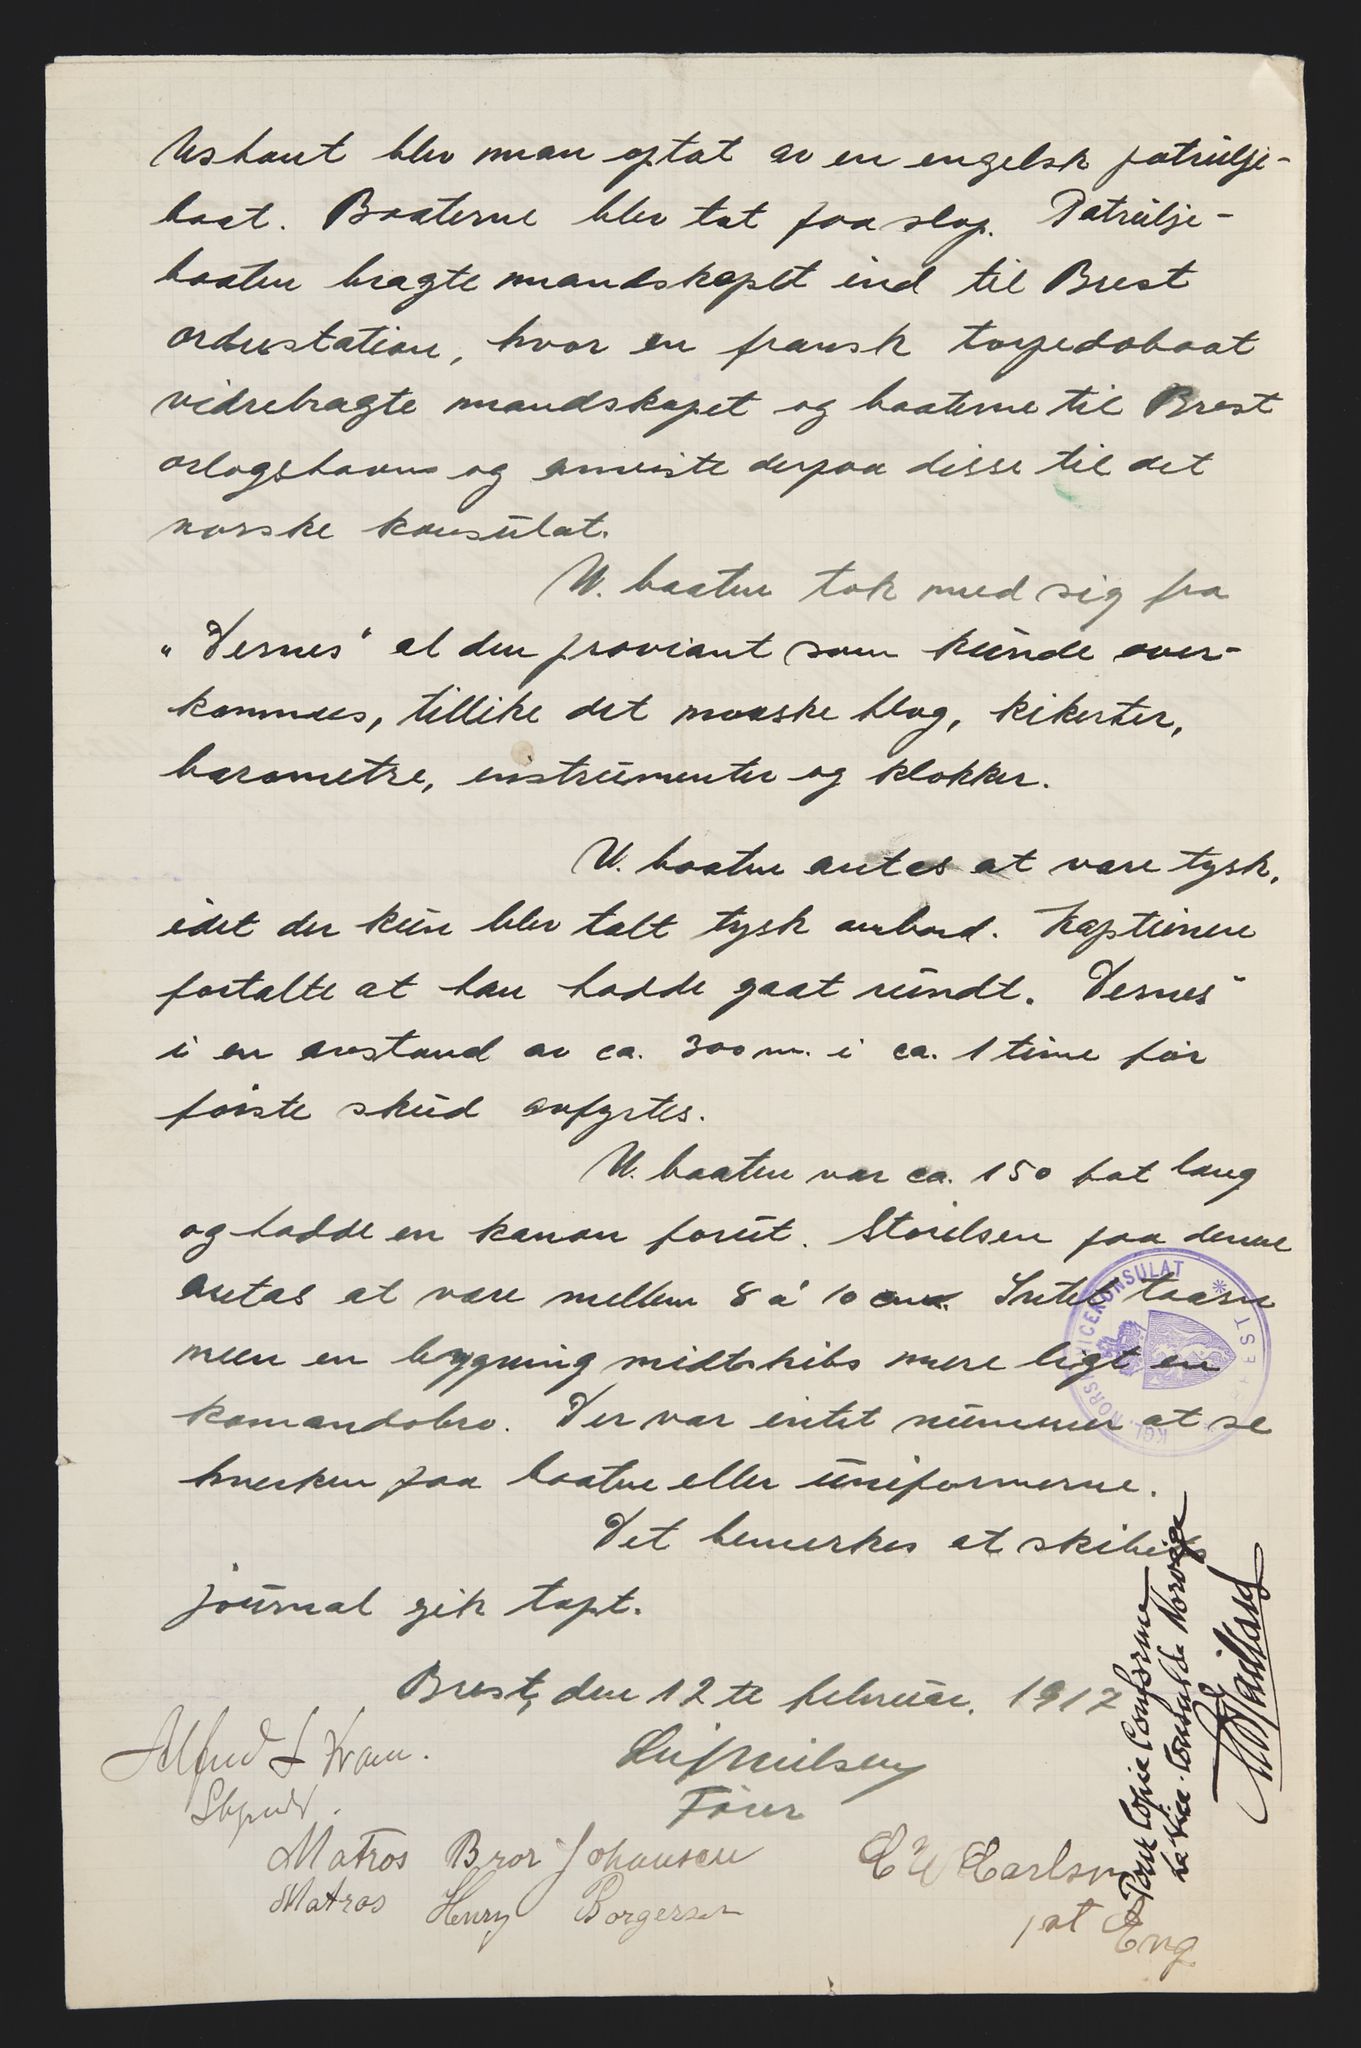 Ushant blev man optat av en engelsk patrulje-
baat. Baaterne blev tat paa slæp. Patrulje-
baaten bragte mandskapet ind til Brest
ordrestation, hvor en fransk torpedobaat
vidrebragte mandskapet og baaterne til Brest
orlogshavn og anviste derpaa disse til det
norske konsulat.
U. baaten tok med sig fra
"Vernes" al den proviant som kunde over-
kommes, tillike det norske flag, kikerter,
barometre, instrumenter og klokker.
U. baaten antes at være tysk,
idet der kun blev talt tysk ombord. Kapteinen
fortalte at han hadde gaat rundt "Vernes"
i en avstand av ca. 300 m. i ca. 1 time før
første skud avfyrtes.
U. baaten var ca. 150 fot lang
og hadde en kanon forut. Størelsen paa denne
antas at være mellem 8 á 10 cm. Intet taarn
men en bygning midtskibs mere ligt en
komandobro. Der var intet nummer at se
hverken paa baaten eller uniformerne.
Det bemerkes at skibets
journal gik tapt.
Brest, den 12 te februar. 1917
Alfred L
Leif Nielsen
Fører
Matros Bror Johansen
Matros Henry Borgersen
C W Carlson
1st Eng
Pour Copie Conforme
Le Vice-Consul de Norvège
KGL. NORSK VICEKONSULAT * BREST